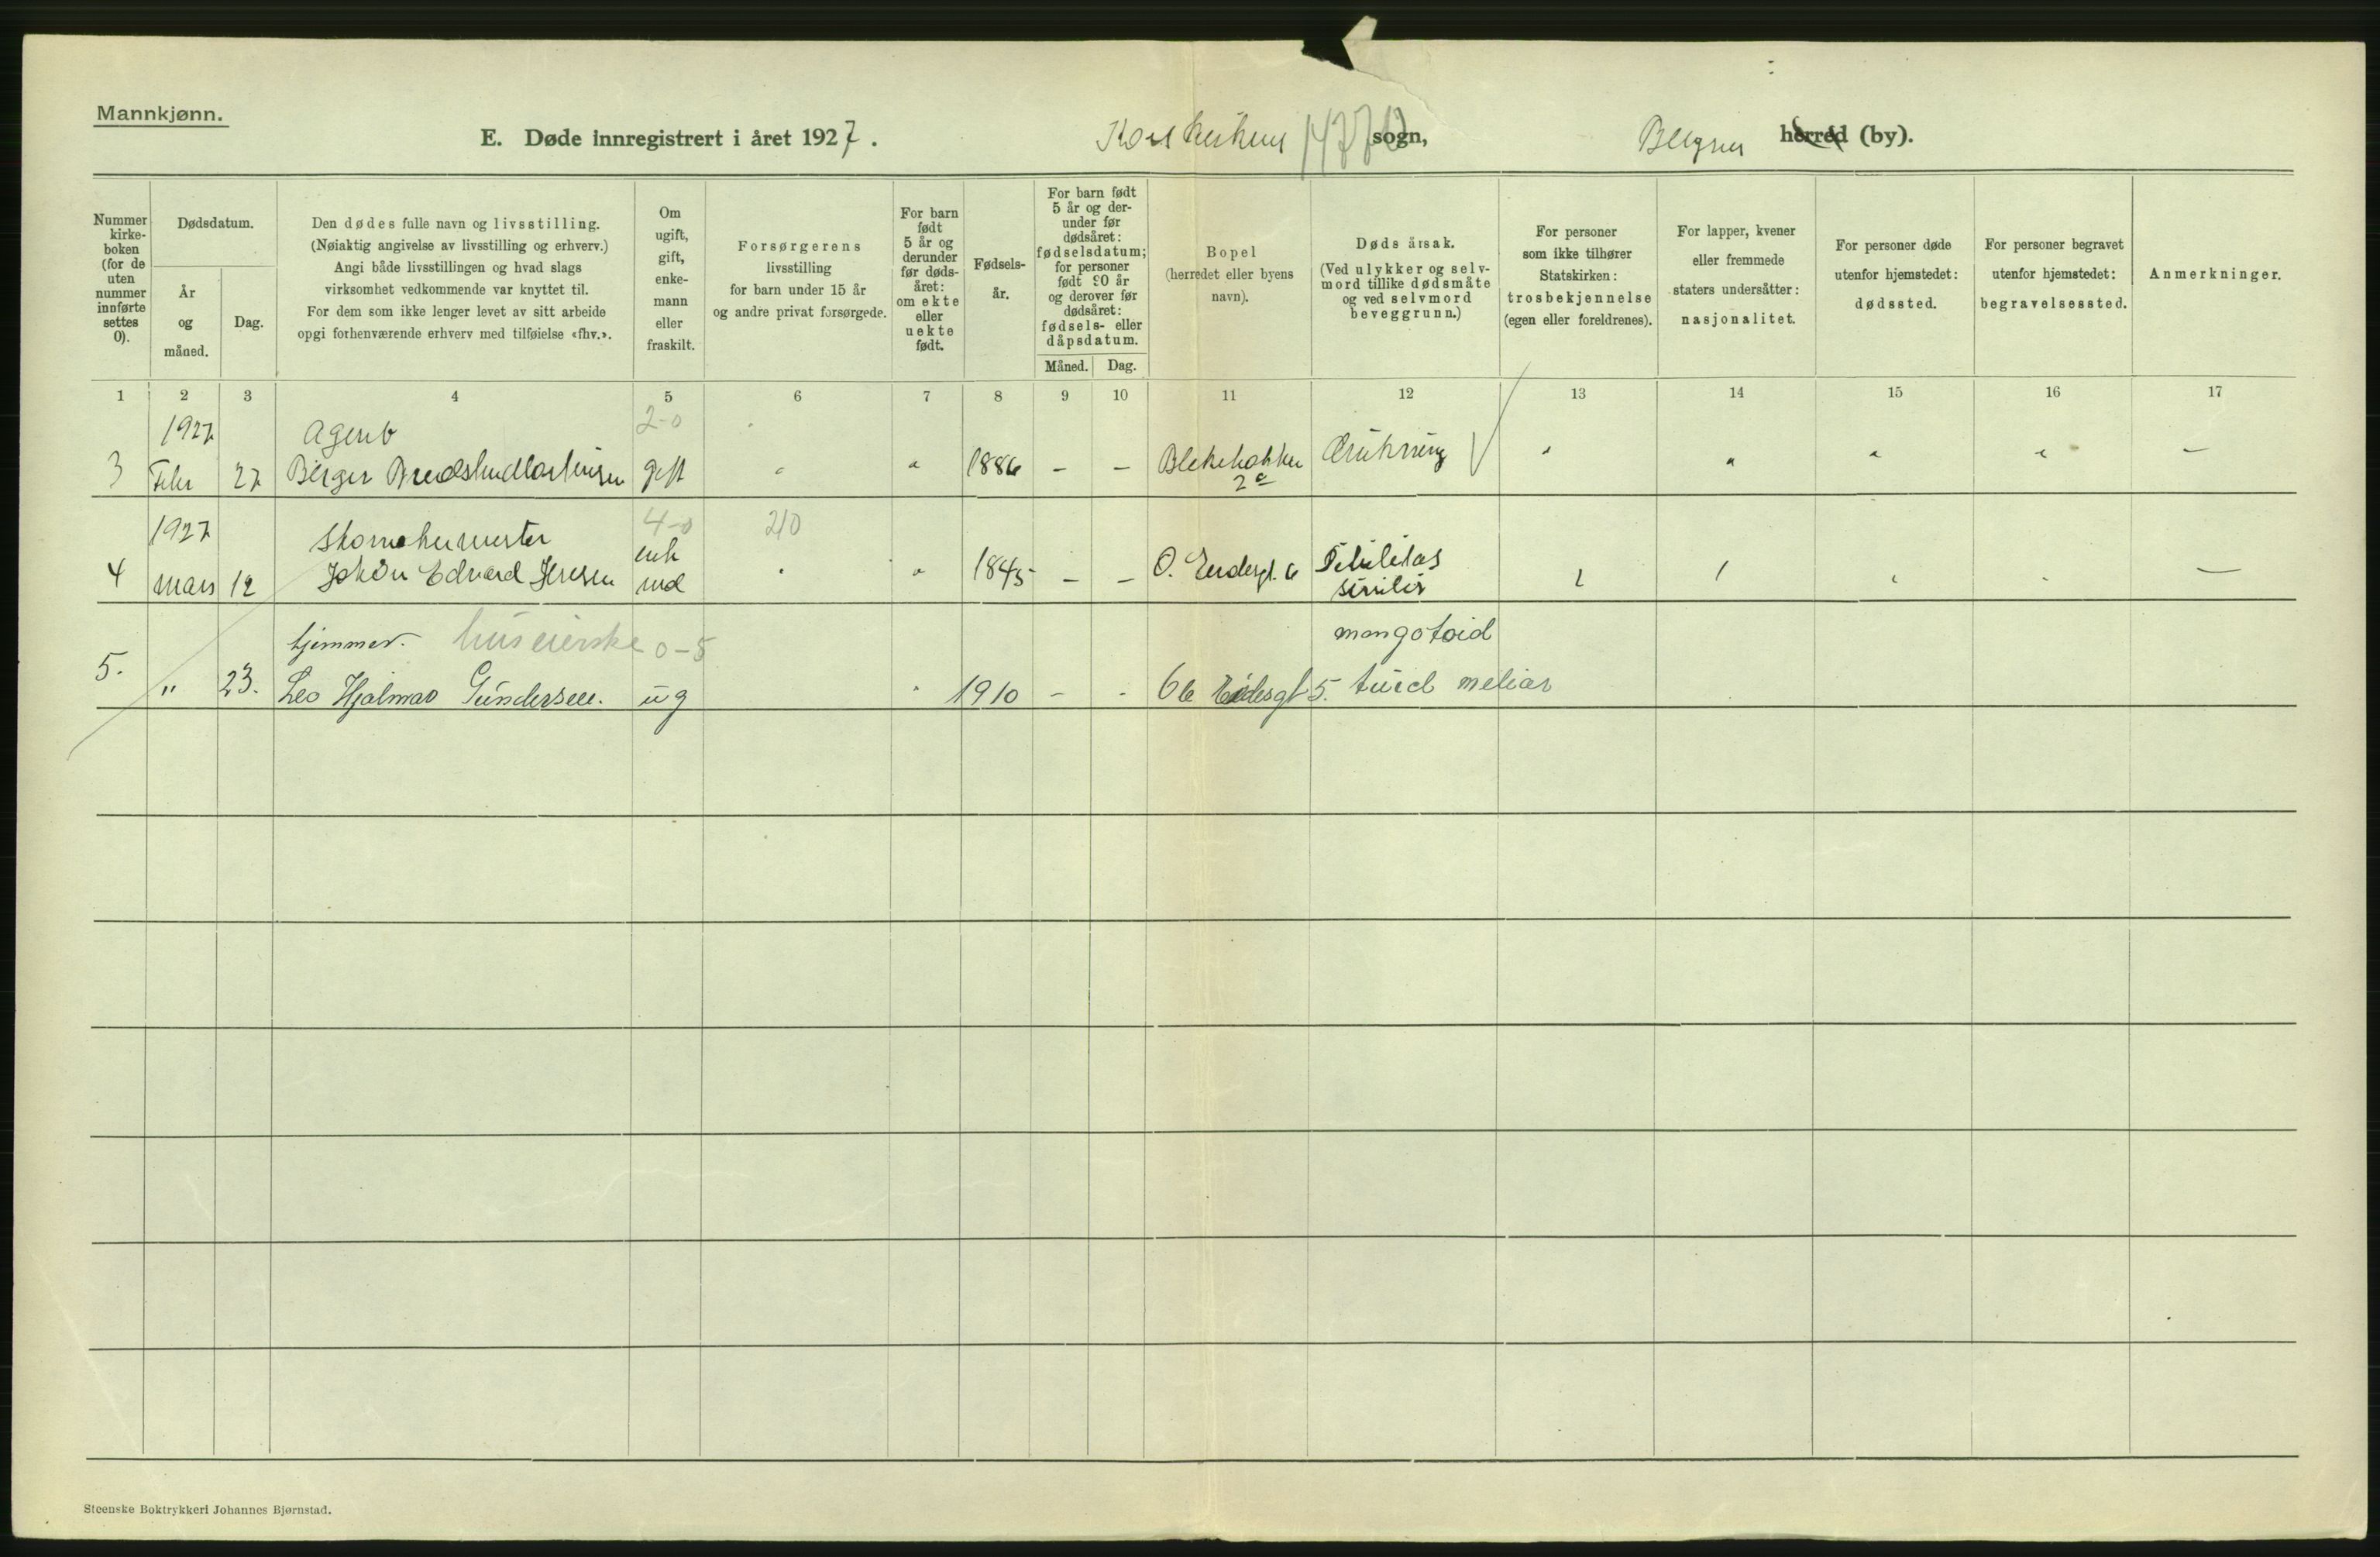 Mannkjønn.
E. Døde innregistrert i året 1927. Korskirkens sogn, Bergen herred (by).
Nummer kirke- boken (for de uten nummer innførte settes 0).
Dødsdatum.
År og måned.
Dag.
Den dødes fulle navn og livsstilling.
(Nøiaktig angivelse av livsstilling og erhverv.)
Angi både livsstillingen og hvad slags
virksomhet vedkommende var knyttet til.
For dem som ikke lenger levet av sitt arbeide
opgi forhenværende erhverv med tilføielse «fhv.».
Om ugift, gift, enke- mann eller fraskilt.
Forsørgerens
livsstilling
for barn under 15 år
og andre privat forsørgede.
For barn født 5 år og derunder før døds- året: om ekte eller uekte født.
Fødsels- år.
For barn født 5 år og der- under før dødsåret: fødselsdatum; for personer født 90 år og derover før dødsåret: fødsels- eller dåpsdatum.
Måned. Dag.
Bopel
(herredet eller byens
navn).
Døds årsak.
(Ved ulykker og selv-
mord tillike dødsmåte
og ved selvmord
beveggrunn.)
For personer
som ikke tilhører
Statskirken:
trosbekjennelse
(egen eller foreldrenes).
For lapper, kvener
eller fremmede
staters undersåtter:
nasjonalitet.
For personer døde
utenfor hjemstedet:
dødssted.
For personer begravet
utenfor hjemstedet:
begravelsessted.
Anmerkninger.
1 2 3 4 5 6 7 8 9 10 11 12 13 14 15 16 17
1927 Agent 2-0
3 Febr 27 Birger gift " " 1886 - - 2a " " " " -
1927 Skomakermester 4-0 210
enk
4 mars 12 Johan Edvard Jensen md " " 1845 - - 6 Debilitas
senilis -
hjemmev. huseierske 0-5
5. " 23. Leo Hjalmar Gundersen. ug " 1910 - - 5.
Steenske Boktrykkeri Johannes Bjørnstad.